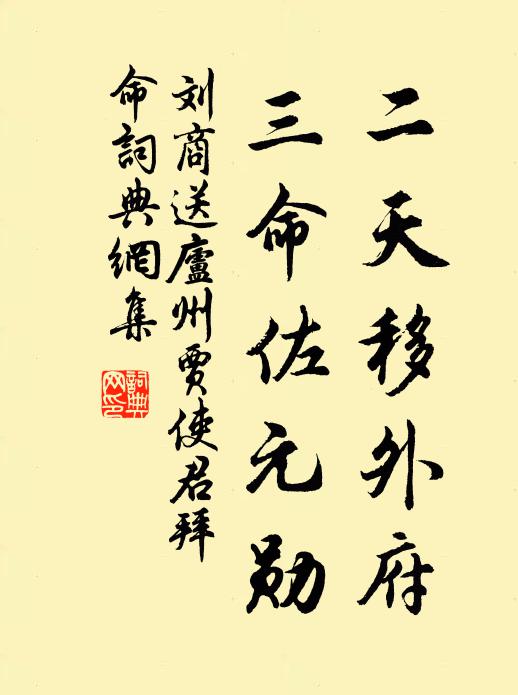 二天移外府
三命佐元勋
刘商送廬州贾使君拜
命詞典網集
詞典网印